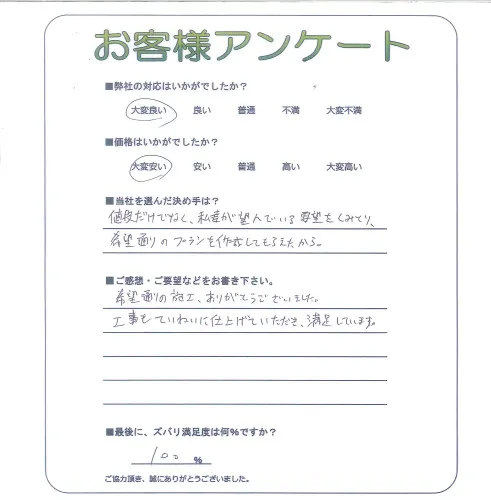 お客様アンケート
■弊社の対応はいかがでしたか?
大変良い 良い 普通 不満 大変不満
■価格はいかがでしたか?
大変安い 安い 普通 高い 大変高い
■当社を選んだ決め手は?
値段だけでなく、私達が望んでいる要望をくみとり、
希望通りのプランを作成してもらえたから。
■ご感想・ご要望などをお書き下さい。
希望通りの施工、ありがとうございました。
工事もていねいに仕上げていただき、満足しています。
■最後に、ズバリ満足度は何%ですか?
100 %
ご協力頂き、誠にありがとうございました。